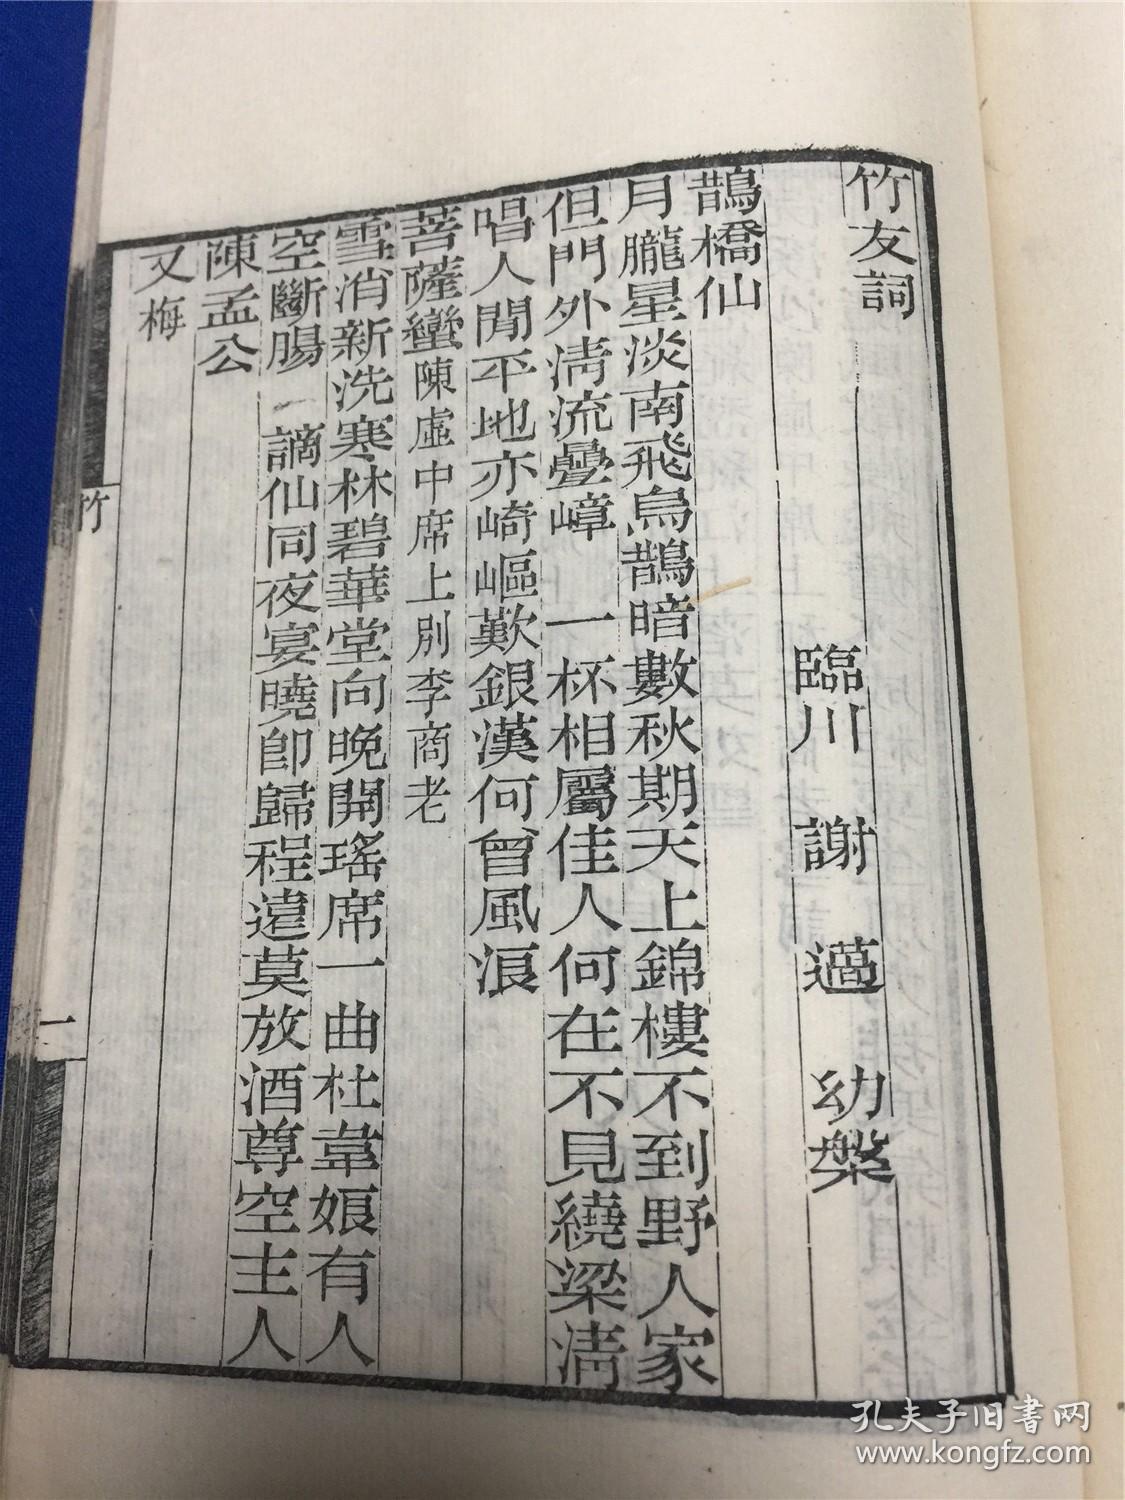 竹友詞
臨川 謝薖 幼槃
鵲橋仙
月朧星淡南飛烏鵲暗數秋期天上錦樓不到野人家
但門外淸流疊嶂 一杯相屬佳人何在不見繞梁淸
唱人閒平地亦崎嶇歎銀漢何曾風浪
菩薩蠻陳虛中席上別李商老
雪消新洗寒林碧華堂向晚開瑤席一曲杜韋娘有人
空斷腸 謫仙同夜宴曉卽歸程遠莫放酒尊空主人
陳孟公
又梅
竹
一
孔夫子旧書网
www.kongfz.com